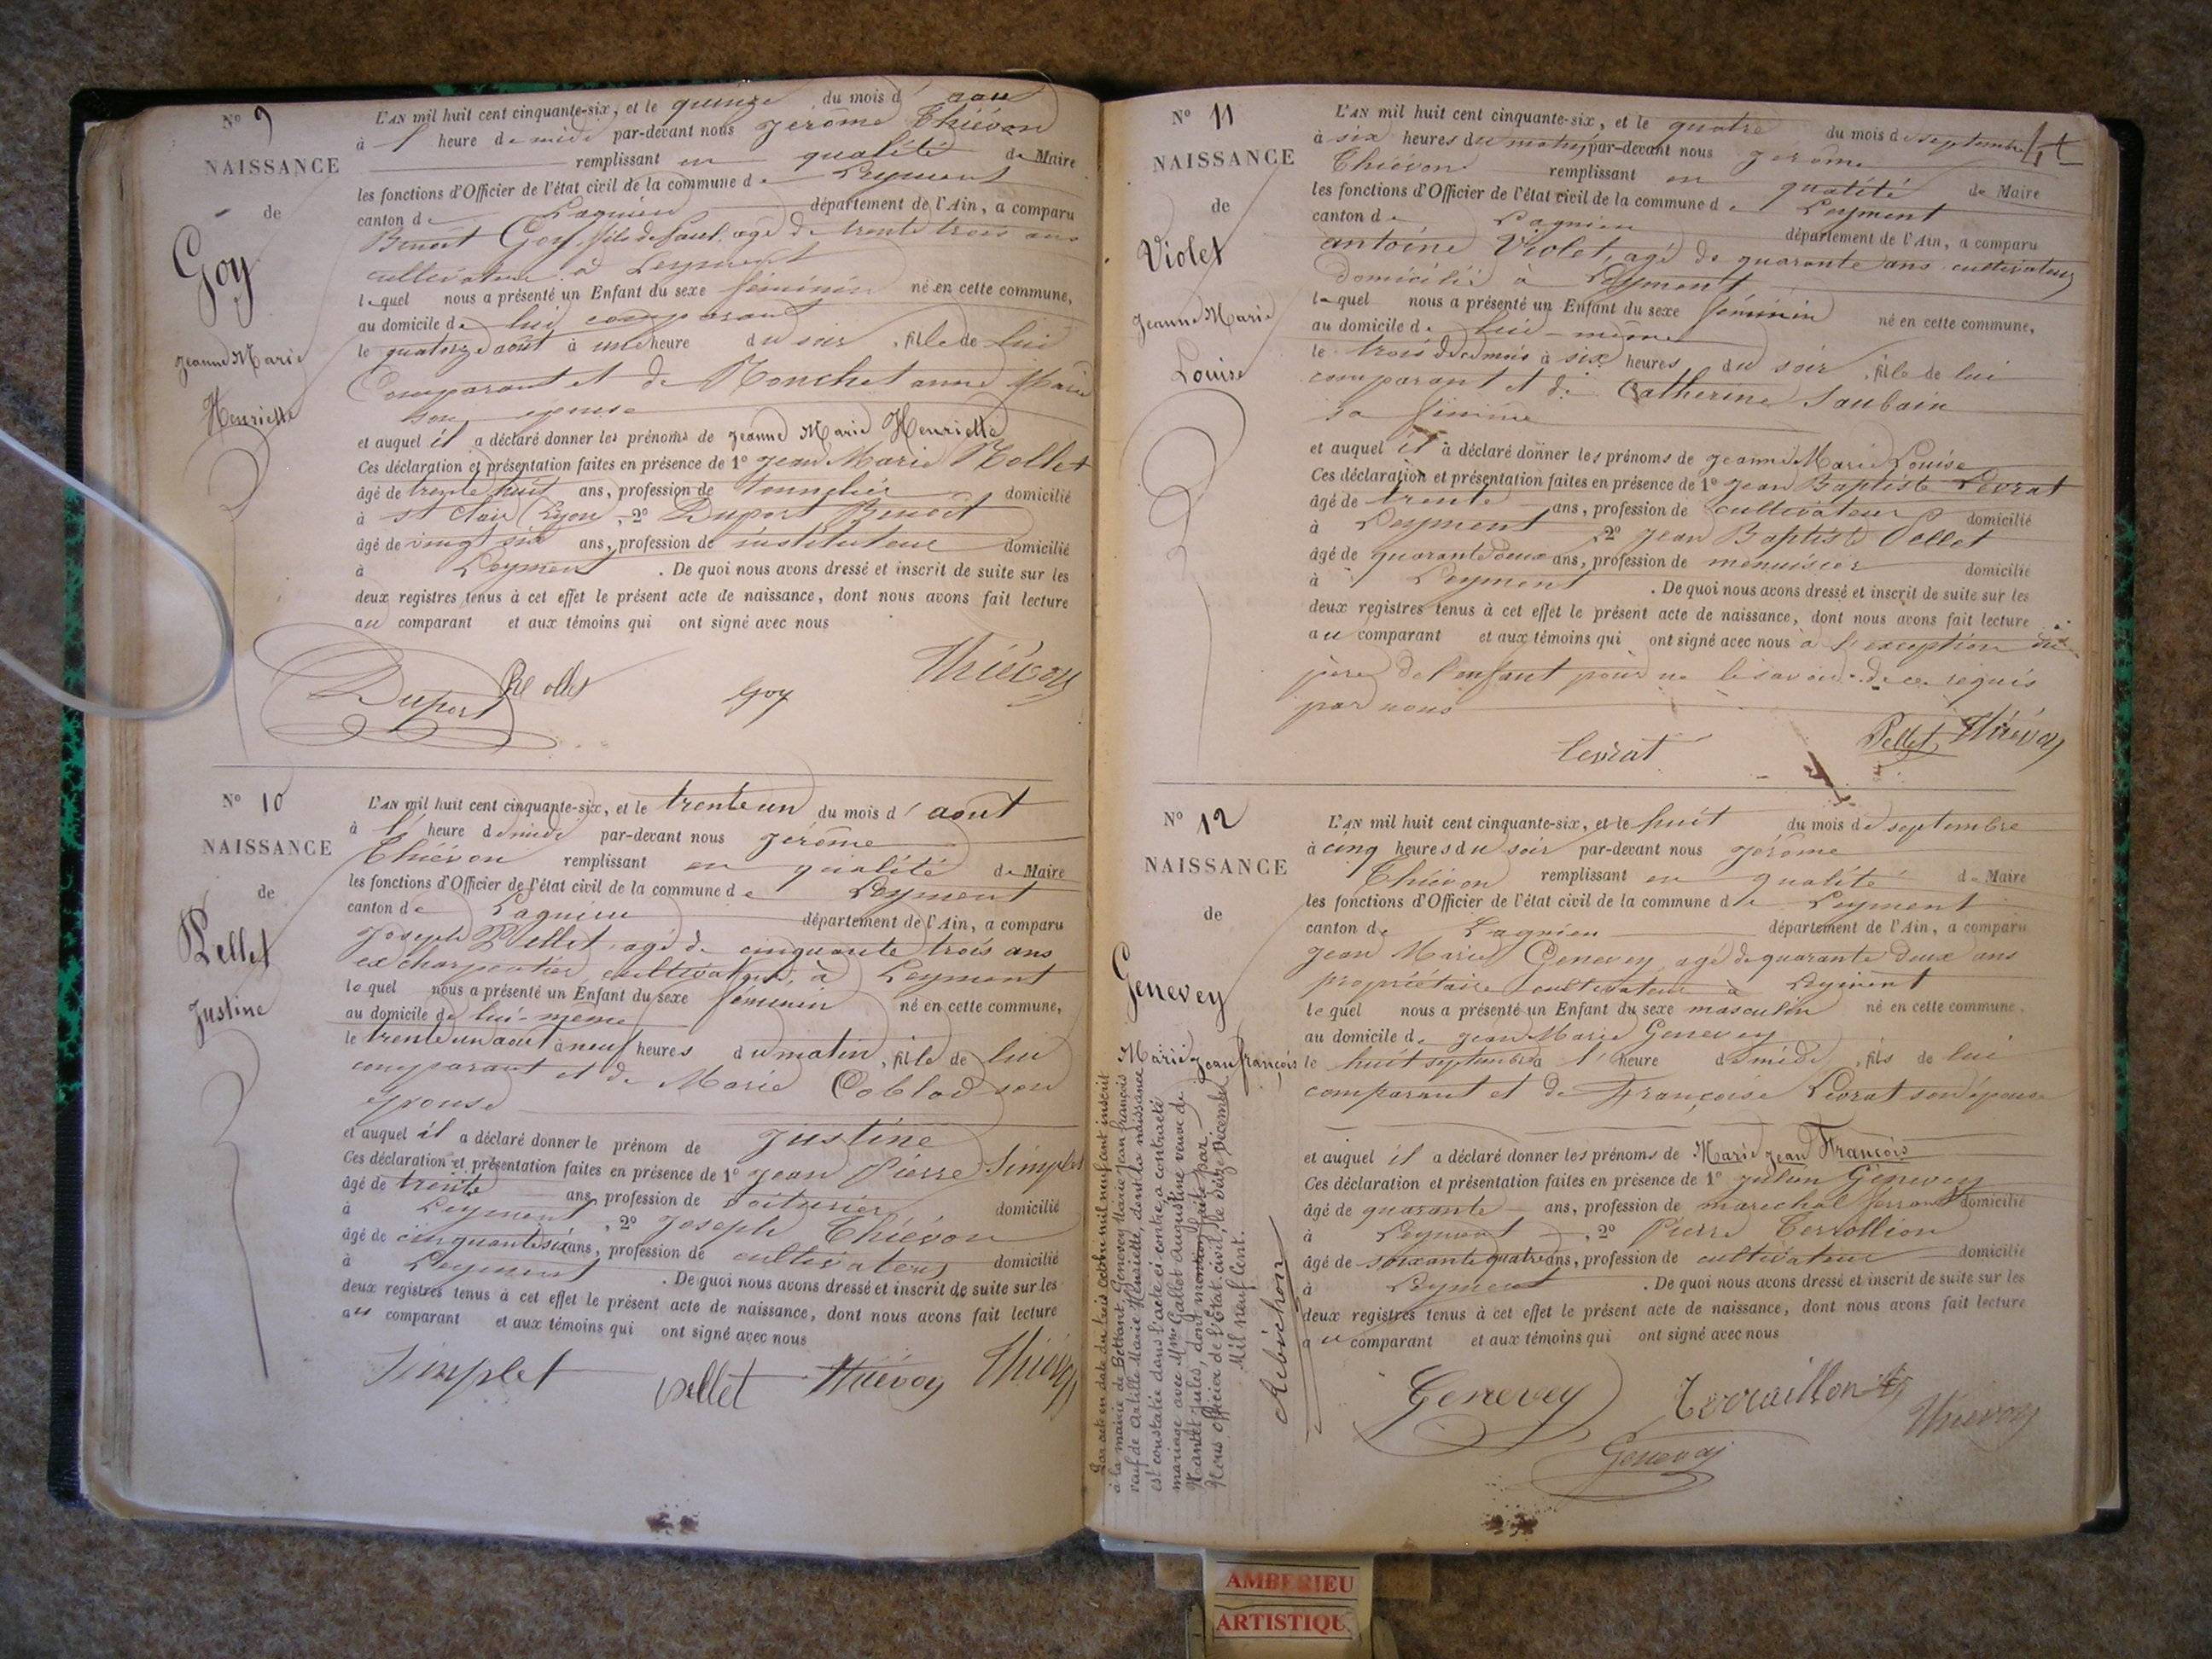 N° 9
NAISSANCE
de
Goy
Jeanne Marie
Henriette
L'AN mil huit cent cinquante-six, et le quinze du mois d'août
à 1 heure de midi par-devant nous Jérôme Thiévon
remplissant en qualité de Maire
les fonctions d'Officier de l'état civil de la commune de Leyment
canton de Lagnieu département de l'Ain, a comparu
Benoit Goy, fils de feu, agé de trente trois ans
cultivateur à Leyment
lequel nous a présenté un Enfant du sexe féminin né en cette commune,
au domicile de lui comparant
le quatorze août à une heure du soir, fille de lui
Comparant et de Ronchet anne Marie
son épouse
et auquel il a déclaré donner les prénoms de Jeanne Marie Henriette
Ces déclaration et présentation faites en présence de 1° Jean Marie Rollet
âgé de trente huit ans, profession de tonnelier domicilié
à St Clair (Lyon), 2° Duport Benoit
âgé de vingt six ans, profession de instituteur domicilié
à Leyment. De quoi nous avons dressé et inscrit de suite sur les
deux registres tenus à cet effet le présent acte de naissance, dont nous avons fait lecture
au comparant et aux témoins qui ont signé avec nous
Duport Rollet Goy Thiévon
N° 10
NAISSANCE
de
Pellet
Justine
L'AN mil huit cent cinquante-six, et le trente un du mois d'août
à 1 heure de midi par-devant nous Jérôme
Thiévon remplissant en qualité de Maire
les fonctions d'Officier de l'état civil de la commune de Leyment
canton de Lagnieu département de l'Ain, a comparu
Joseph Pellet, agé de cinquante trois ans
ex charpentier, cultivateur, à Leyment
lequel nous a présenté un Enfant du sexe féminin né en cette commune,
au domicile de lui-même
le trente un aout à neuf heures du matin, fille de lui
comparant et de Marie Coblod son
épouse
et auquel il a déclaré donner le prénom de Justine
Ces déclaration et présentation faites en présence de 1° Jean Pierre Simplet
âgé de trente ans, profession de voiturier domicilié
à Leyment, 2° Joseph Thiévon
âgé de cinquante six ans, profession de cultivateur domicilié
à Leyment. De quoi nous avons dressé et inscrit de suite sur les
deux registres tenus à cet effet le présent acte de naissance, dont nous avons fait lecture
au comparant et aux témoins qui ont signé avec nous
Simplet Pellet Thiévon Thiévon
N° 11
NAISSANCE
de
Violet
Jeanne Marie
Louise
L'AN mil huit cent cinquante-six, et le quatre du mois de septembre
à six heures du matin par-devant nous Jérôme
Thiévon remplissant en qualité de Maire
les fonctions d'Officier de l'état civil de la commune de Leyment
canton de Lagnieu département de l'Ain, a comparu
antoine Violet, agé de quarante ans cultivateur
domicilié à Leyment
lequel nous a présenté un Enfant du sexe féminin né en cette commune,
au domicile de lui-même
le trois de ce mois à six heures du soir, fille de lui
comparant et de Catherine Saubain
sa femme
et auquel il a déclaré donner les prénoms de Jeanne Marie Louise
Ces déclaration et présentation faites en présence de 1° Jean Baptiste Levrat
âgé de trente ans, profession de cultivateur domicilié
à Leyment, 2° Jean Baptiste Pellet
âgé de quarante deux ans, profession de menuisier domicilié
à Leyment. De quoi nous avons dressé et inscrit de suite sur les
deux registres tenus à cet effet le présent acte de naissance, dont nous avons fait lecture
au comparant et aux témoins qui ont signé avec nous à l'exception du
père de l'enfant pour ne le savoir de ce requis
par nous
Levrat Pellet Thiévon
N° 12
NAISSANCE
de
Genevey
Marie Jean françois
L'AN mil huit cent cinquante-six, et le huit du mois de septembre
à cinq heures du soir par-devant nous Jérôme
Thiévon remplissant en qualité de Maire
les fonctions d'Officier de l'état civil de la commune de Leyment
canton de Lagnieu département de l'Ain, a comparu
Jean Marie Genevey agé de quarante deux ans
propriétaire cultivateur à Leyment
lequel nous a présenté un Enfant du sexe masculin né en cette commune,
au domicile de Jean Marie Genevey
le huit septembre à 1 heure de midi, fils de lui
comparant et de Françoise Levrat son épouse
et auquel il a déclaré donner les prénoms de Marie Jean François
Ces déclaration et présentation faites en présence de 1° Julien Génevey
âgé de quarante ans, profession de marechal ferrant domicilié
à Leyment, 2° Pierre Terrollion
âgé de soixante quatre ans, profession de cultivateur domicilié
à Leyment. De quoi nous avons dressé et inscrit de suite sur les
deux registres tenus à cet effet le présent acte de naissance, dont nous avons fait lecture
au comparant et aux témoins qui ont signé avec nous
Genevey Terraillon Thiévon
Genevey
Par acte en date du trois octobre mil neuf cent inscrit
à la mairie de Bettant, Genevey Marie Jean françois
veuf de Artille Marie Henriette, dont la naissance
est constatée dans l'acte ci-contre, a contracté
mariage avec Mme Gallet Augustine veuve de
Jules, dont mention faite par
Nous officier de l'Etat civil, le seize Décembre
Mil neuf Cent.
Rebichon
AMBERIEU
ARTISTIQU